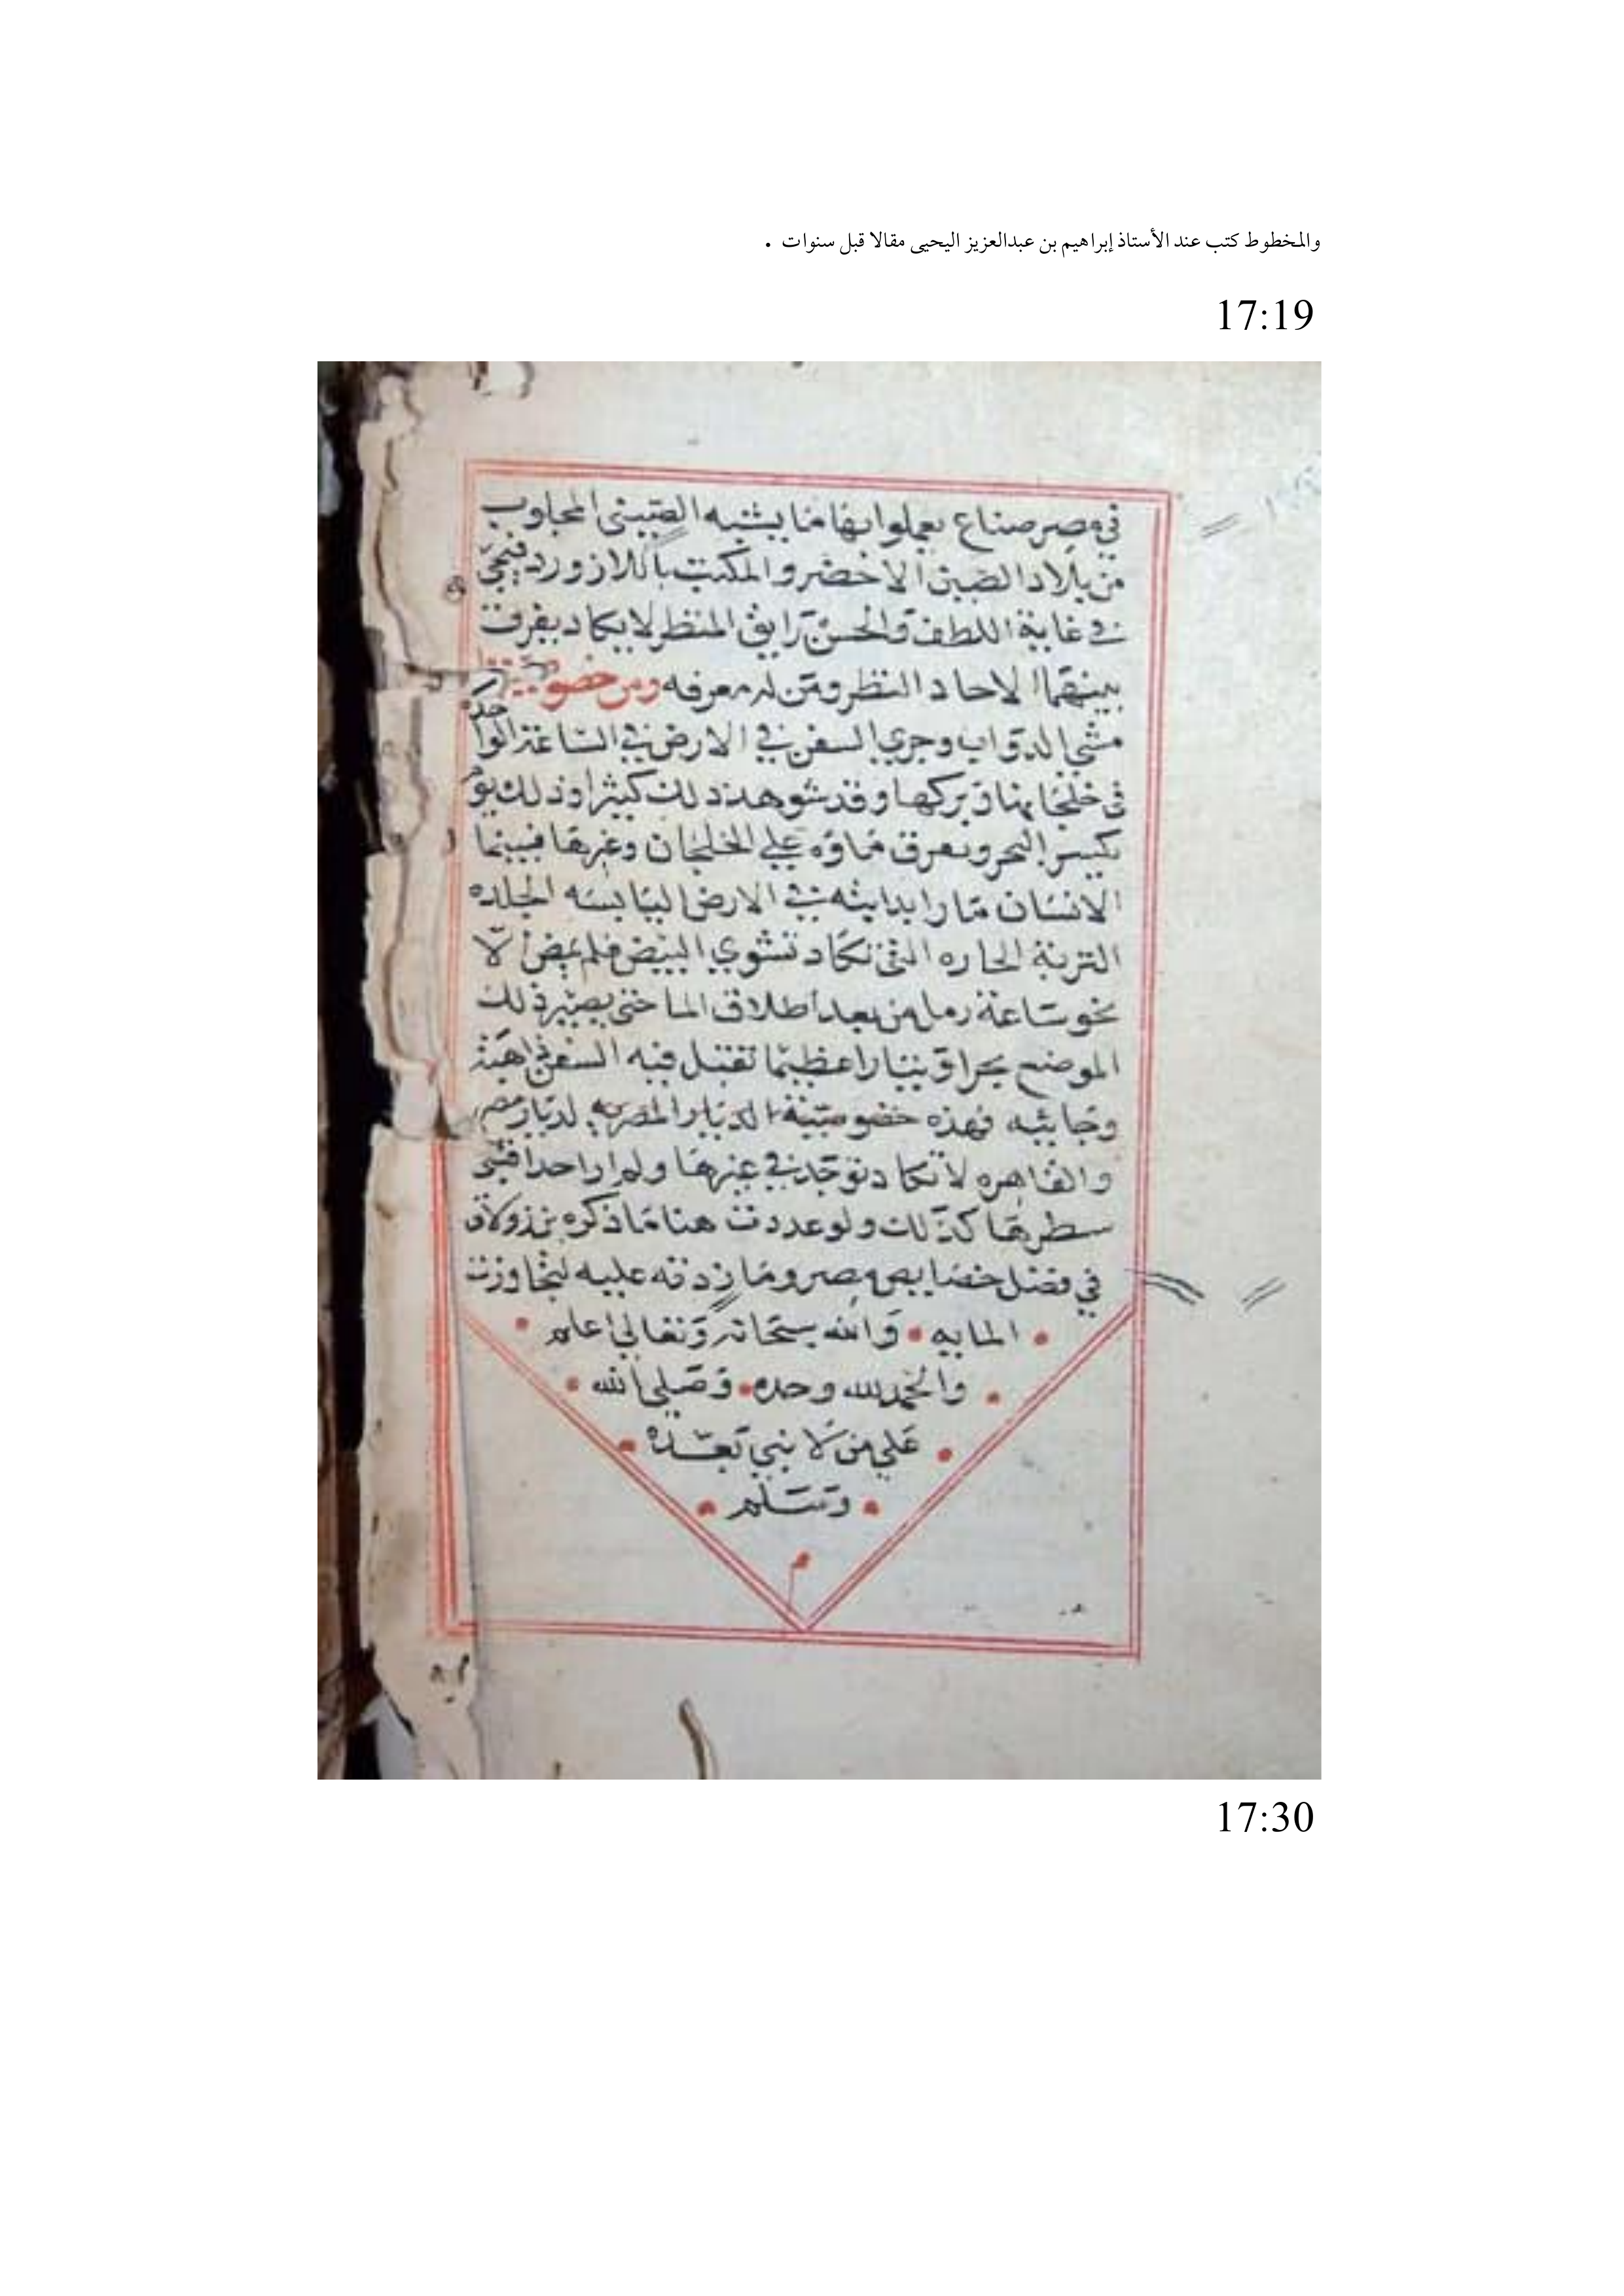 والمخطوط كتب عند الأستاذ إبراهيم بن عبدالعزيز اليحيى مقالا قبل سنوات .
17:19
في مصر صناع يعملوا بها ما يشبه الصيني المجلوب
من بلاد الصين الاخضر والمكتب باللازورد فيجي
في غاية اللطف والحسن رايق المنظر لا يكاد يفرق
بينهما الا حاد النظر ومن له معرفه ومن خصوصيتها
مشي الدواب وجري السفن في الارض في الساعة الواحده
في خلجانها وبركها وقد شوهد ذلك كثيرا وذلك يوم
يكسر البحر ويفرق ماؤه علي الخلجان وغيرها فبينما
الانسان مارا بدابته في الارض اليابسه الجلده
التربة الحاره التي تكاد تشوي البيض فلم يمض الا
نحو ساعة رمل من بعد اطلاق الما حتي يصير ذلك
الموضع بحرا وتيارا عظيما تقبل فيه السفن ذاهبة
وجائيه فهذه خصوصية الديار المصريه لديار مصر
والقاهره لا تكاد توجد في غيرها ولم ار احدا قبلي
سطرها كذلك ولو عددت هنا ما ذكره بن زولاق
في فضل خصايص مصر وما زدته عليه لتجاوزت
المايه والله سبحانه وتعالي اعلم
والحمد لله وحده وصلي الله
علي من لا نبي بعده
وسلم
م
17:30